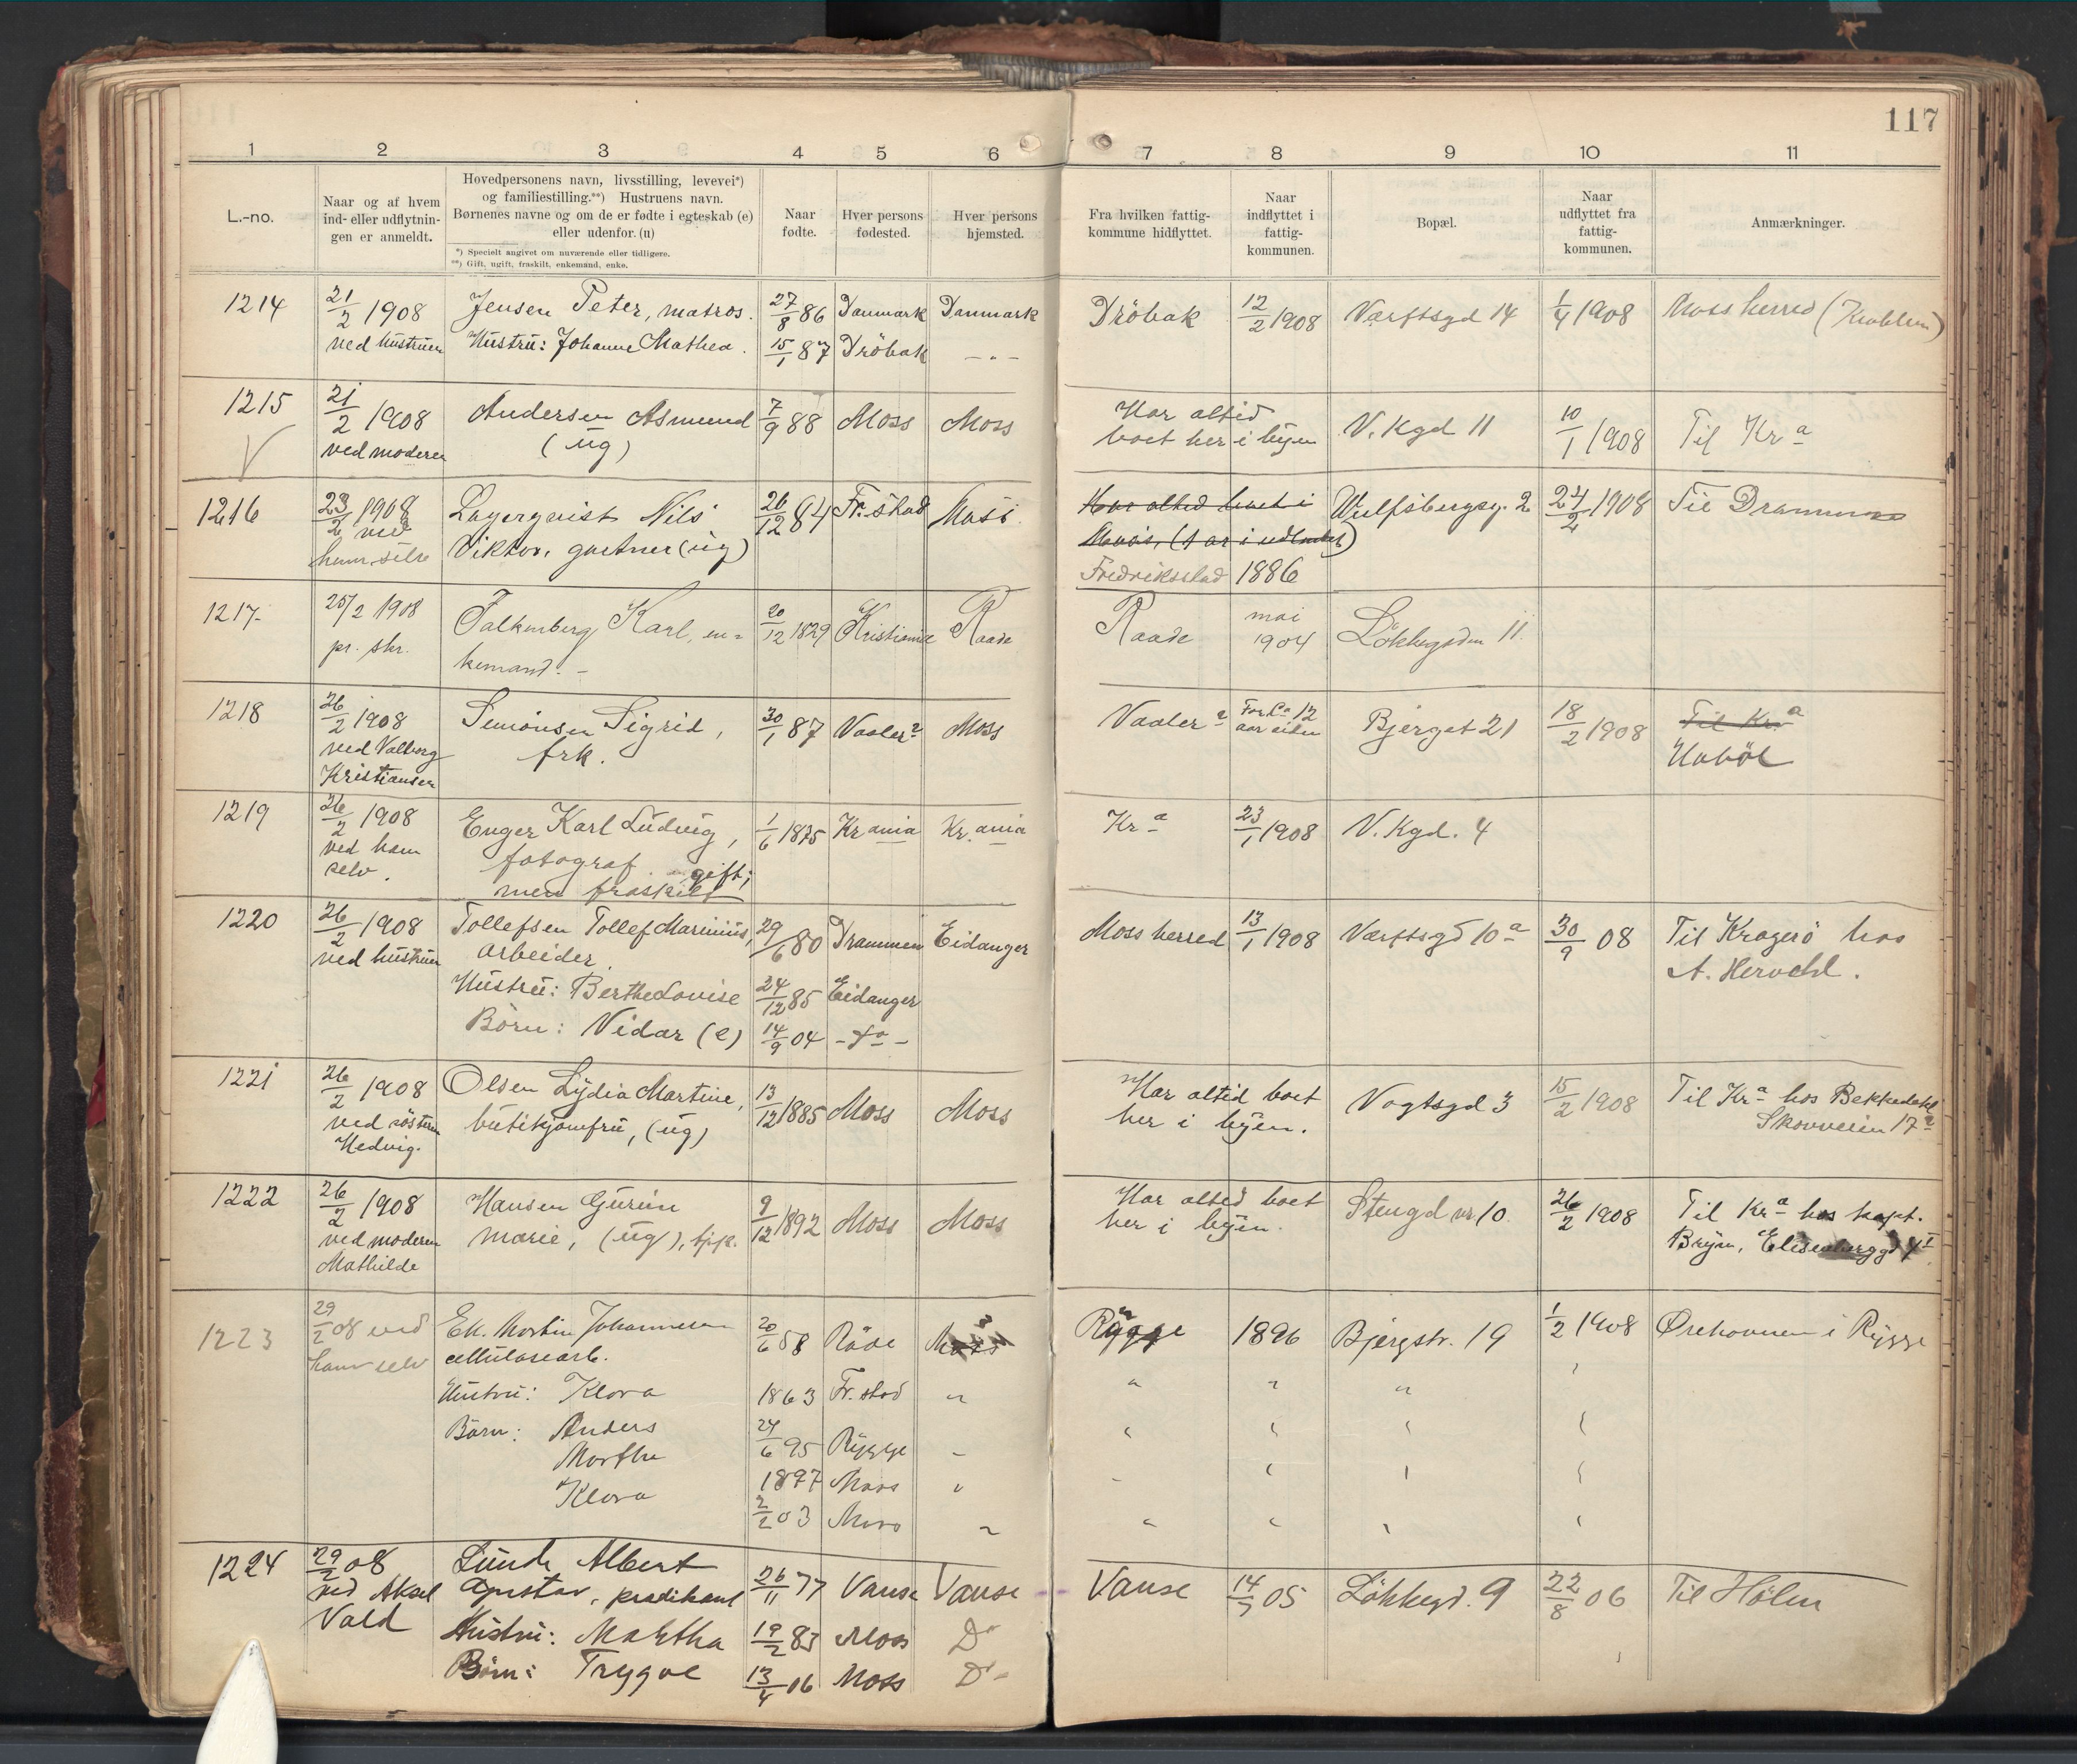 117
1 2 3 4 5 6 7 8 9 10 11
L.-no.
Naar og af hvem
ind- eller udflytnin-
gen er anmeldt.
Hovedpersonens navn, livsstilling, levevei*)
og familiestilling.**) Hustruens navn.
Børnenes navne og om de er fødte i egteskab (e)
eller udenfor. (u)
*) Specielt angivet om nuværende eller tidligere.
**) Gift, ugift, fraskilt, enkemand, enke.
Naar
fødte.
Hver persons
fødested.
Hver persons
hjemsted.
Fra hvilken fattig-
kommune hidflyttet.
Naar
indflyttet i
fattig-
kommunen.
Bopæl.
Naar
udflyttet fra
fattig-
kommunen.
Anmærkninger.
1214 21/2 1908 Jensen Peter, matros. 27/8 86 Danmark Danmark Dröbak 12/2 1908 Værftsgd 14 1/4 1908 Moss herred
ved hustruen Hustru: Johanne Mathea. 15/1 87 Dröbak — " —
1215 21/2 1908 Andersen Asmund 7/9 88 Moss Moss Har altid V. Kgd 11 10/1 1908 Til Kra
ved moderen (ug) boet her i byen
1216 23/2 1908 Lagerqvist Nils 26/12 84 Fr.stad Moss Har altid boet i Wulfsbergsg. 2 24/2 1908 Til Drammen
ved Viktor, gartner (ug) Moss, (1 ar i udlandet)
ham selv Fredriksstad 1886
1217 25/2 1908 Falkenberg Karl, en- 20/12 1829 Kristiania Raade Raade mai 1904 Løkkegaden 11.
pr. skr. kemand. -
1218 26/2 1908 Simonsen Sigrid, 30/1 87 Vaaler? Moss Vaaler? For Ca 12 Bjerget 21 18/2 1908 Til Kra
ved Valborg frk. aar siden Hobøl
Kristiansen
1219 26/2 1908 Enger Karl Ludvig, 1/6 1875 Krania Kr.ania Kra 23/1 1908 V. Kgd. 4
ved ham fotograf gift;
selv. men fraskilt
1220 26/2 1908 Tollefsen Tollef Marinius, 29/6 80 Drammen Eidanger Moss herred 13/1 1908 Værftsgd 10a 30/9 08 Til Kragerö hos
ved hustruen arbeider. A.
Hustru: Berthe Lovise 24/12 85 Eidanger
Börn: Vidar (e) 14/9 04 - do -
1221 26/2 1908 Olsen Lydia Martine, 13/12 1885 Moss Moss Har altid boet Vogtsgd 3 15/2 1908 Til Kra hos Bekkedahl
ved söstren butikjomfru, (ug) her i byen. Skovveien 17a
Hedvig.
1222 26/2 1908 Hansen Gurine 9/12 1892 Moss Moss Har altid boet Stengd nr 10 26/2 1908 Til Kra hos kapt.
ved moderen Marie, (ug), tjp. her i byen. Bryn, Elisenberggd 4 I
Mathilde
1223 29/2 08 ved Ek. Martin Johannesen 20/6 58 Råde Moss Rygge 1896 Bjergstr. 19 1/2 1908 Ørehavnen i Rygge
ham selv cellulosearb.
Hustru: Klara 1863 Fr.stad " " " "
Börn: Anders 24/6 95 Rygge
Marthe 1897 Moss
Klara 2/2 03 Moss
1224 29/2 08 Lunde Albert 26/11 77 Vanse Vanse Vanse 14/7 05 Løkkegd. 9 22/8 06 Til Hölen
ved Aksel Gustav, prædikant
Vold Hustru: Martha 19/2 83 Moss Do
Børn: Trygve 13/4 06 Moss Do